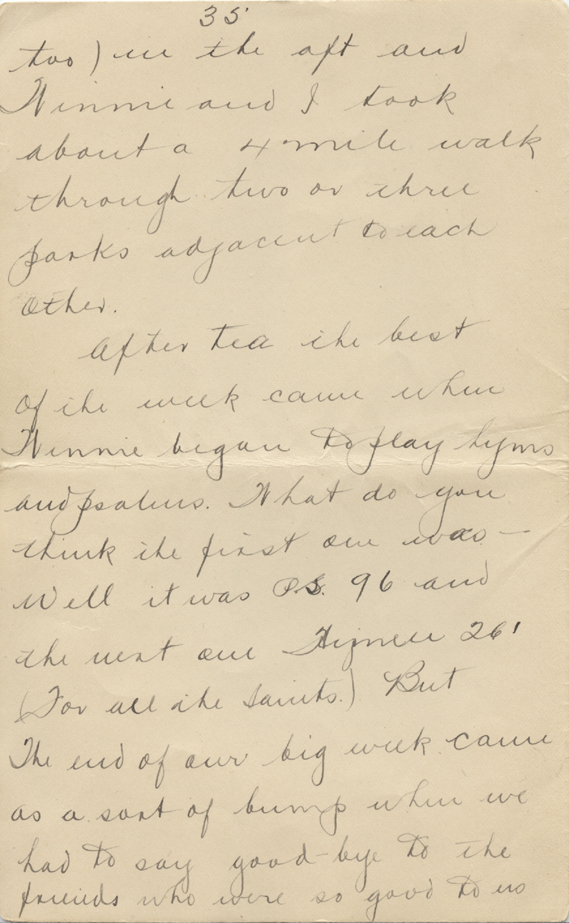 35
two) in the aft and
Winnie and I took
about a 4 mile walk
through two or three
parks adjacent to each
other.
After tea the best
of the week came when
Winnie began to play hyms
and psalms. What do you
think the first one was—
Well it was P.S. 96 and
the next one Hymn 261
(For all the saints.) But
The end of our big week came
as a sort of bump when we
had to say good-bye to the
friends who were so good to us